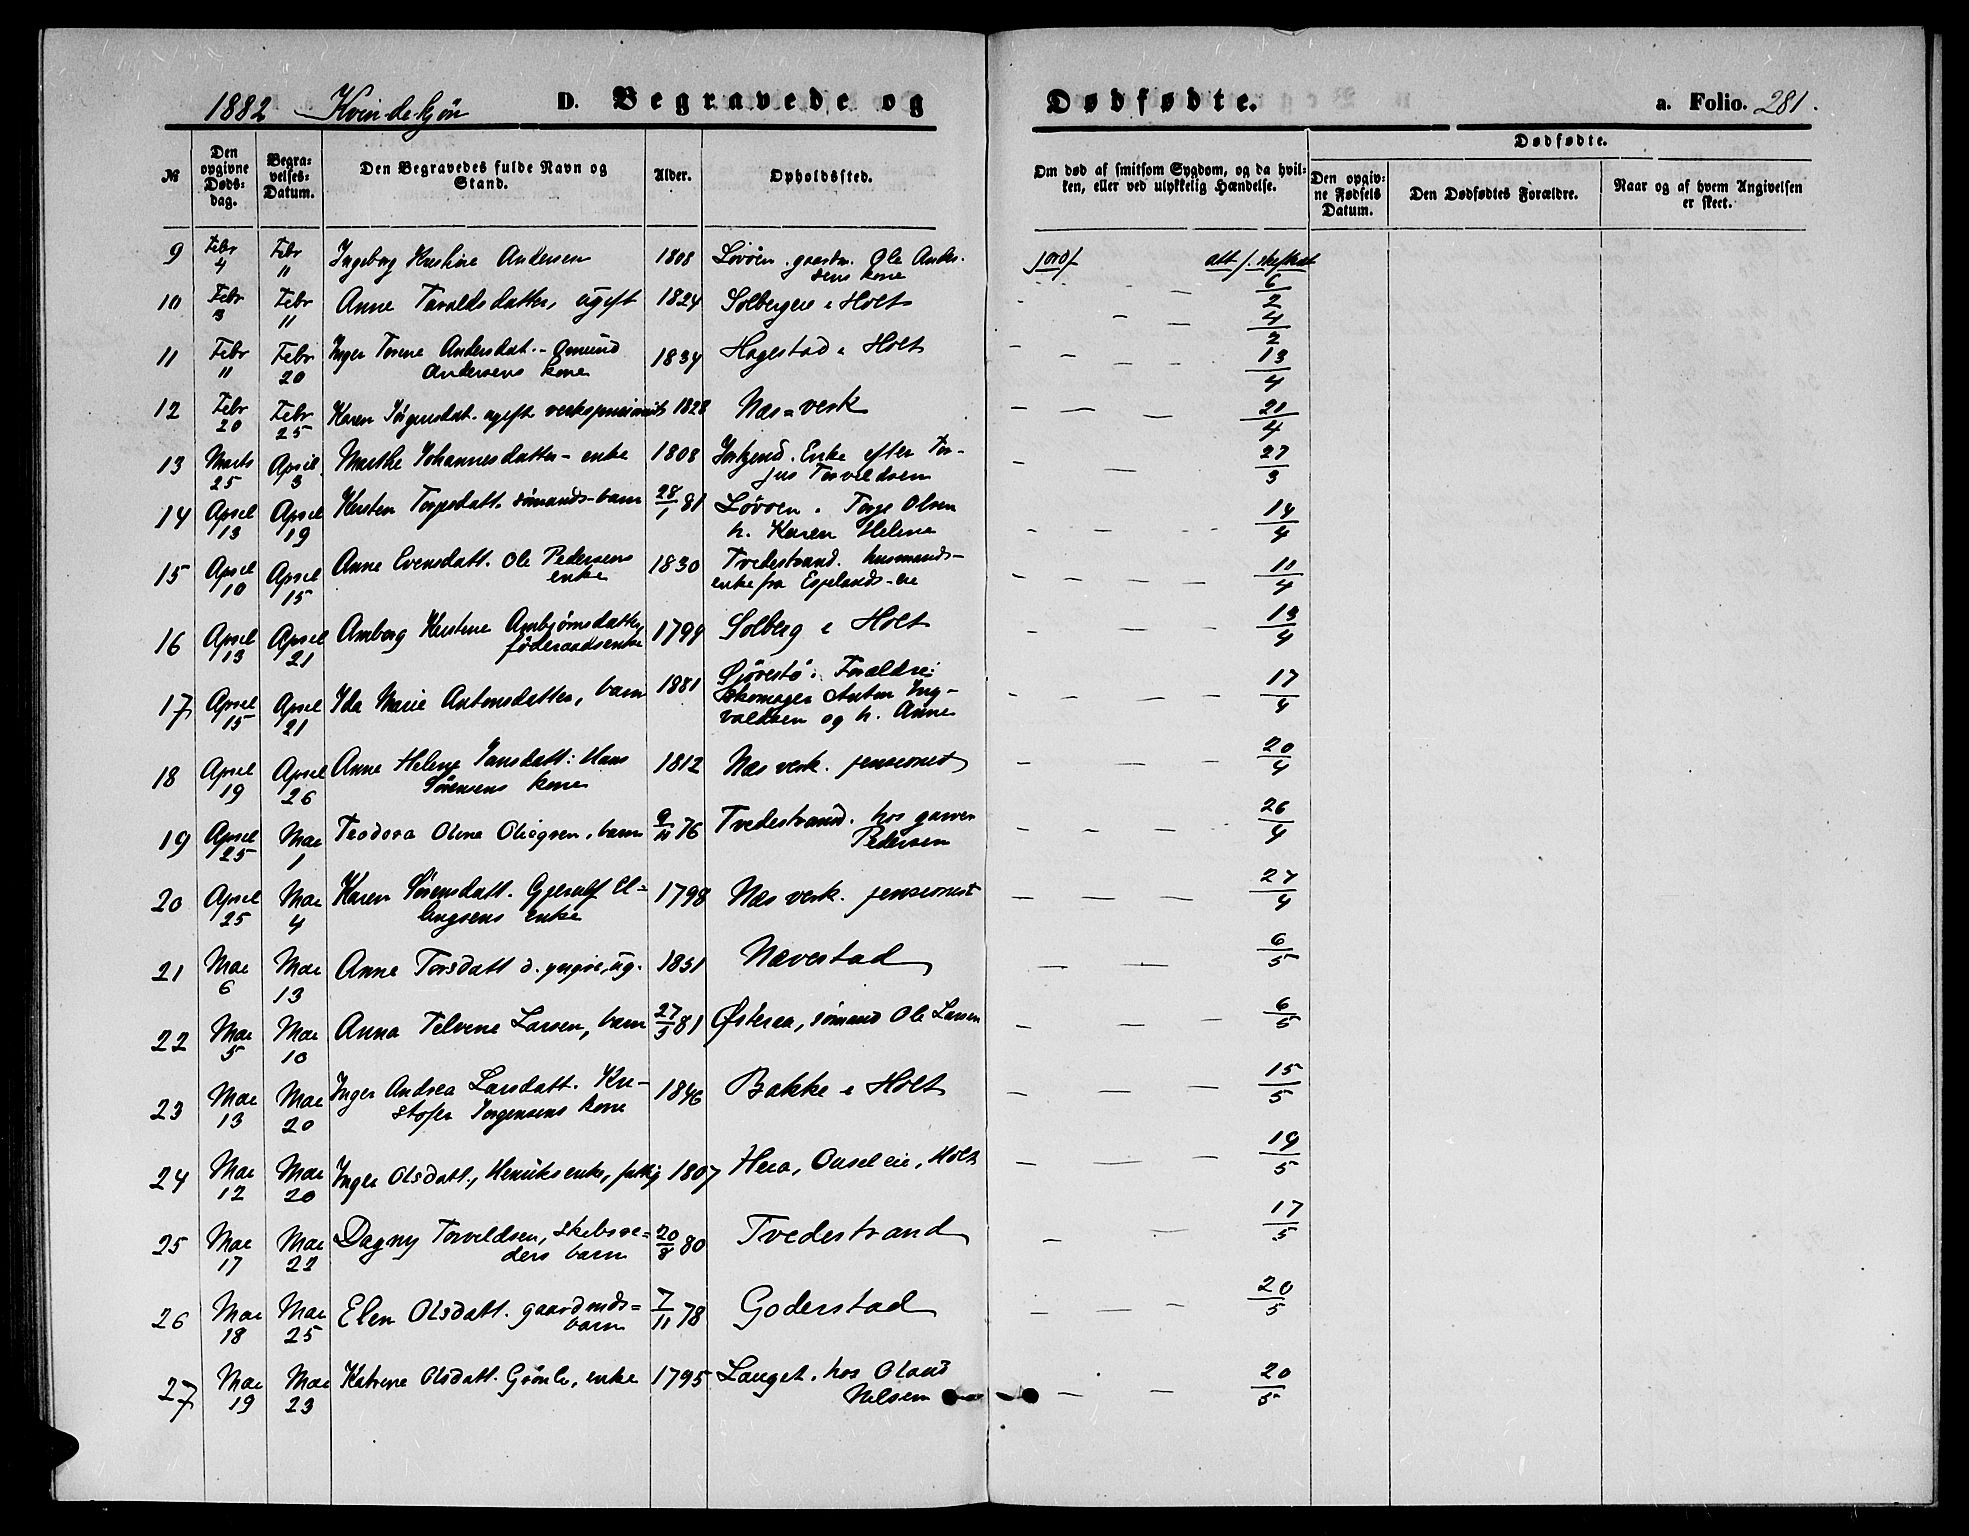 1882 Kvindekjøn D. Begravede og Dødfødte. a. Folio. 281.
Dødfødte.
№ Den opgivne Døds-dag. Begra-velses-Datum. Den Begravedes fulde Navn og Stand. Alder. Opholdssted. Om død af smitsom Sygdom, og da hvil-ken, eller ved ulykkelig Hændelse. Den opgiv-ne Fødsels Datum. Den Dødfødtes Forældre. Naar og af hvem Angivelsen er skeet.
9 Febr 4 Febr 11 Ingeborg Kirstine Andersen 1808 Løvøen. gaardm. Ole Ander-
sens kone jordf. att. f. skifteret 6/2
10 Febr 3 Febr 11 Anne Taraldsdatter, ugift 1824 Solberg i Holt - - 4/2
11 Febr 11 Febr 20 Inger Torine Andersdat. - Amund 1834 Hagestad i Holt - - - 13/4
Andersens kone
12 Febr 20 Febr 25 Karen Jørgensdat. ugift verkspensionist 1828 Næs-verk - - - 21/4
13 Marts 25 April 3 Marthe Johannesdatter - enke 1808 Enke efter Tor-
jus Torvildsen - - 27/3
14 April 13 April 19 Kirsten Torjesdatt. sømands-barn 28/1 81 Løvøen. Torje Olsen
h. Karen Helene - - - 14/4
15 April 10 April 15 Anne Evensdatt. Ole Pedersens 1830 Tvedestrand. husmands-
enke enke fra Espelands-eie - - - - 11/4
16 April 13 April 21 Amborg Kirstine Ambjørnsdatter, 1799 Solberg i Holt - - - 13/4
føderaadsenke
17 April 15 April 21 Ida Marie Antonsdatter, barn 1881 Sjøvestø. Forældre:
Skomager Anton Ing-
valdsen og h. Anne - - - - 17/4
18 April 19 April 26 Anne Helene Jansdatt: Hans 1812 Næs verk. pensionist - - - - 20/4
Sørensens kone
19 April 25 Mai 1 Teodora Oline barn 9/11 76 Tvedestrand. hos garver
Pedersen - - - - 26/4
20 April 25 Mai 4 Karen Sørensdatt. Gjerulf El- 1798 Næs verk. pensionist - - - - 27/4
lingsens enke
21 Mai 6 Mai 13 Anne Torsdatt d. yngre, ug. 1851 Nævestad - - - 6/5
22 Mai 5 Mai 10 Anna Telvine Larsen, barn 27/5 81 Østeraa, sømand Ole Larsen - - - 6/5
23 Mai 13 Mai 20 Inger Andrea Larsdatt. Kri- 1846 Bakke i Holt - - - 15/5
stofer Jørgensens kone
24 Mai 12 Mai 20 Inger Olsdatt., Henriks enke, fattig 1807 Heia, eie, Holt - - - 19/5
25 Mai 17 Mai 22 Dagny Torvildsen, skibsre- 20/8 80 Tvedestrand - - 17/5
ders barn
26 Mai 18 Mai 25 Elen Olsdatt. gaardmds- 7/11 78 Goderstad - - - 20/5
barn
27 Mai 19 Mai 23 Katrine Olsdatt. Grønli, enke 1795 Langet. hos Olaus
Nilsen - - - 20/5